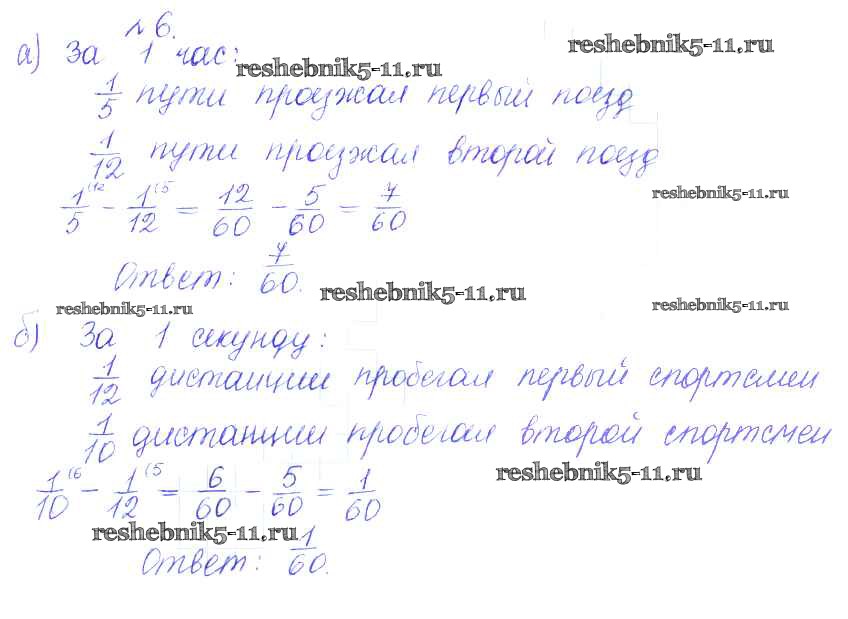 №6.
reshebnik5-11.ru
а) За 1 час:
reshebnik5-11.ru
1/5 пути проезжал первый поезд
1/12 пути проезжал второй поезд
reshebnik5-11.ru
1/5 (12 - 1/12 (5 = 12/60 - 5/60 = 7/60
Ответ: 7/60.
reshebnik5-11.ru
reshebnik5-11.ru
reshebnik5-11.ru
б) За 1 секунду:
1/12 дистанции пробегал первый спортсмен
1/10 дистанции пробегал второй спортсмен
reshebnik5-11.ru
1/10 (6 - 1/12 (5 = 6/60 - 5/60 = 1/60
reshebnik5-11.ru
Ответ: 1/60.